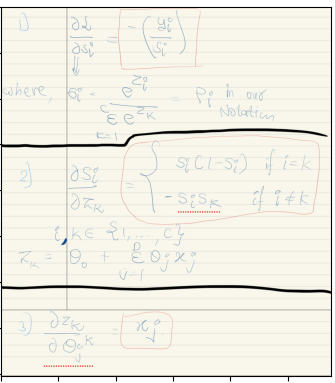 1) ∂L/∂si = -(yi/si)
where, si = e^zi / Σ k=1 e^zk = Pi in our Notation
2) ∂Si/∂zk = { Si(1-Si) if i=k
-SiSk if i≠k
i,k ∈ {1,...,c}
zk = θ0 + Σ j=1 θj xj
3) ∂zk/∂θj^k = xj